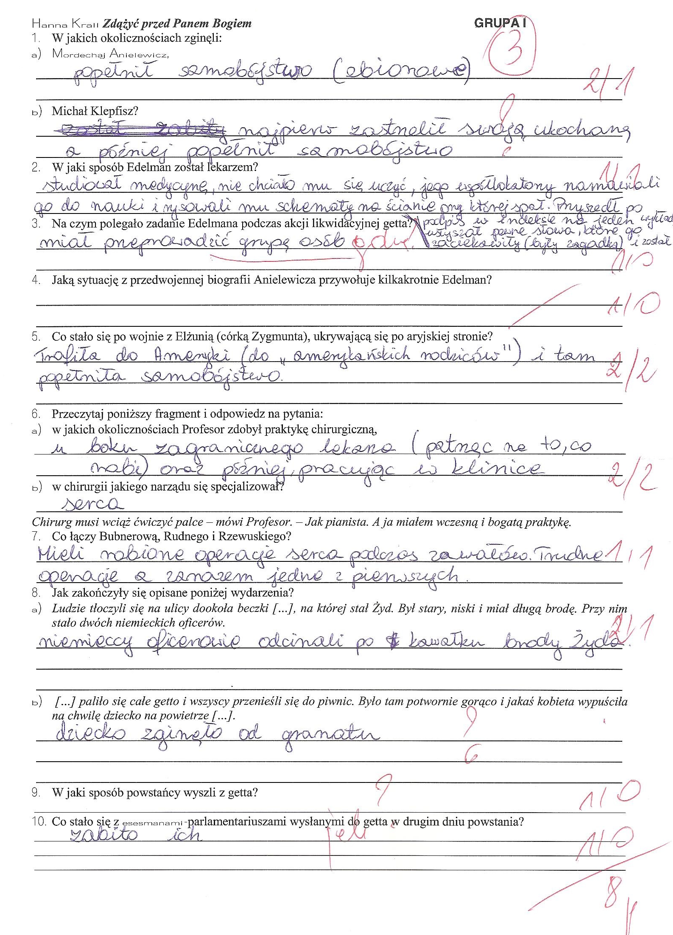 Hanna Krall Zdążyć przed Panem Bogiem GRUPA I
3
1. W jakich okolicznościach zginęli:
a) Mordechaj Anielewicz,
popełnił samobójstwo (zbiorowe)
2/1
b) Michał Klepfisz?
został zabity najpierw zastrzelił swoją ukochaną
a później popełnił samobójstwo
2. W jaki sposób Edelman został lekarzem?
1/1
studiował medycynę, nie chciało mu się uczyć, jego współlokatorzy namawiali
go do nauki i rysowali mu schematy na ścianie przy której spał. Przyszedł po
podpis w indeksie na jeden wykład
3. Na czym polegało zadanie Edelmana podczas akcji likwidacyjnej getta?
usłyszał pewne słowa, które go
zaciekawiły (były zagadką) i został
miał przeprowadzić grupę osób
1/0
4. Jaką sytuację z przedwojennej biografii Anielewicza przywołuje kilkakrotnie Edelman?
1/0
5. Co stało się po wojnie z Elżunią (córką Zygmunta), ukrywającą się po aryjskiej stronie?
Trafiła do Ameryki (do „amerykańskich rodziców") i tam
popełniła samobójstwo.
2/2
6. Przeczytaj poniższy fragment i odpowiedz na pytania:
a) w jakich okolicznościach Profesor zdobył praktykę chirurgiczną,
u boku zagranicznego lekarza (patrząc na to, co
robi) oraz później, pracując w klinice
2/2
b) w chirurgii jakiego narządu się specjalizował?
serca
Chirurg musi wciąż ćwiczyć palce – mówi Profesor. – Jak pianista. A ja miałem wczesną i bogatą praktykę.
7. Co łączy Bubnerową, Rudnego i Rzewuskiego?
Mieli robione operacje serca podczas zawałów. Trudne
1/1
operacje a zarazem jedne z pierwszych.
8. Jak zakończyły się opisane poniżej wydarzenia?
a) Ludzie tłoczyli się na ulicy dookoła beczki [...], na której stał Żyd. Był stary, niski i miał długą brodę. Przy nim
stało dwóch niemieckich oficerów.
2/1
niemieccy oficerowie odcinali po kawałku brody Żyda.
b) [...] paliło się całe getto i wszyscy przenieśli się do piwnic. Było tam potwornie gorąco i jakaś kobieta wypuściła
na chwilę dziecko na powietrze [...].
dziecko zginęło od granatu
9. W jaki sposób powstańcy wyszli z getta?
?
1/0
10. Co stało się z esesmanami-parlamentariuszami wysłanymi do getta w drugim dniu powstania?
zabito ich
1/0
8